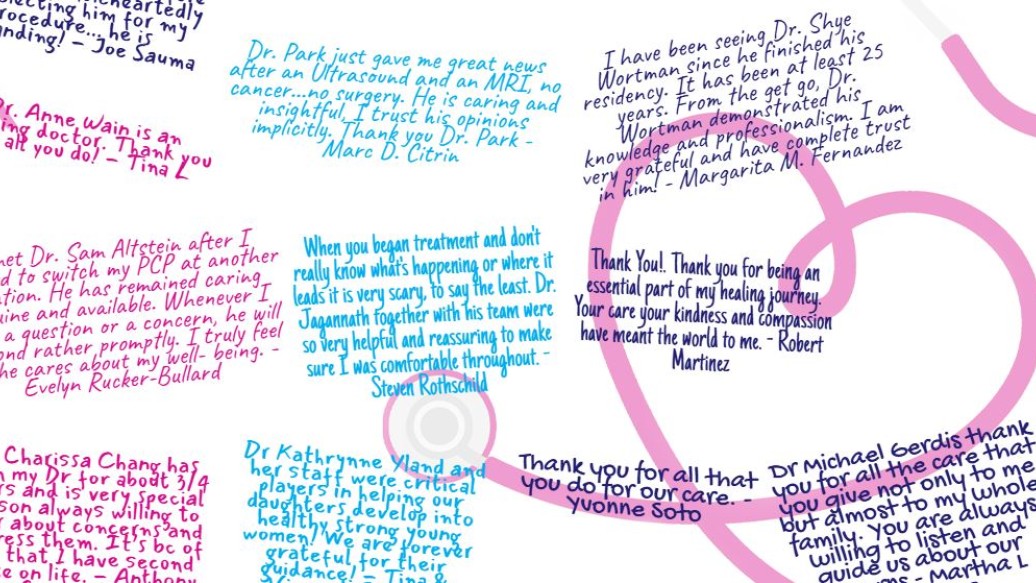 cting him for my
rocedure... he is
nding! - Joe Sauma
Dr. Park just gave me great news
after an Ultrasound and an MRI, no
cancer...no surgery. He is caring and
insightful, I trust his opinions
implicitly. Thank you Dr. Park -
Marc D. Citrin
I have been seeing Dr. Shye
Wortman since he finished his
residency. It has been at least 25
years. From the get go, Dr.
Wortman demonstrated his
knowledge and professionalism. I am
very grateful and have complete trust
in him! - Margarita M. Fernandez
Dr. Anne Wain is an
ing doctor. Thank you
all you do! - Tina L
met Dr. Sam Altstein after I
d to switch my PCP at another
ation. He has remained caring
uine and available. Whenever I
a question or a concern, he will
ond rather promptly. I truly feel
he cares about my well- being. -
Evelyn Rucker-Bullard
When you began treatment and don't
really know what's happening or where it
leads it is very scary, to say the least. Dr.
Jagannath together with his team were
so very helpful and reassuring to make
sure I was comfortable throughout. -
Steven Rothschild
Thank You!. Thank you for being an
essential part of my healing journey.
Your care your kindness and compassion
have meant the world to me. - Robert
Martinez
Charissa Chang has
n my Dr for about 3/4
rs and is very special
son always willing to
r about concerns and
ress them. It's bc of
that I have second
e on life. - Anthony
Dr Kathrynne Yland and
her staff were critical
players in helping our
daughters develop into
healthy strong young
women! We are forever
grateful for their
guidance! - Tina &
Thank you for all that
you do for our care. -
Yvonne Soto
Dr Michael Gerdis thank
you for all the care that
you give not only to me
but almost to my whole
family. You are always
willing to listen and
guide us about our
ns - Martha L